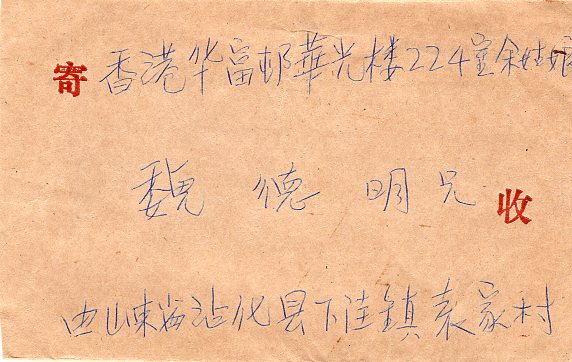 寄 香港华富邨華光楼224室余姑娘
魏德明兄 收
由山东省沾化县下洼镇袁家村